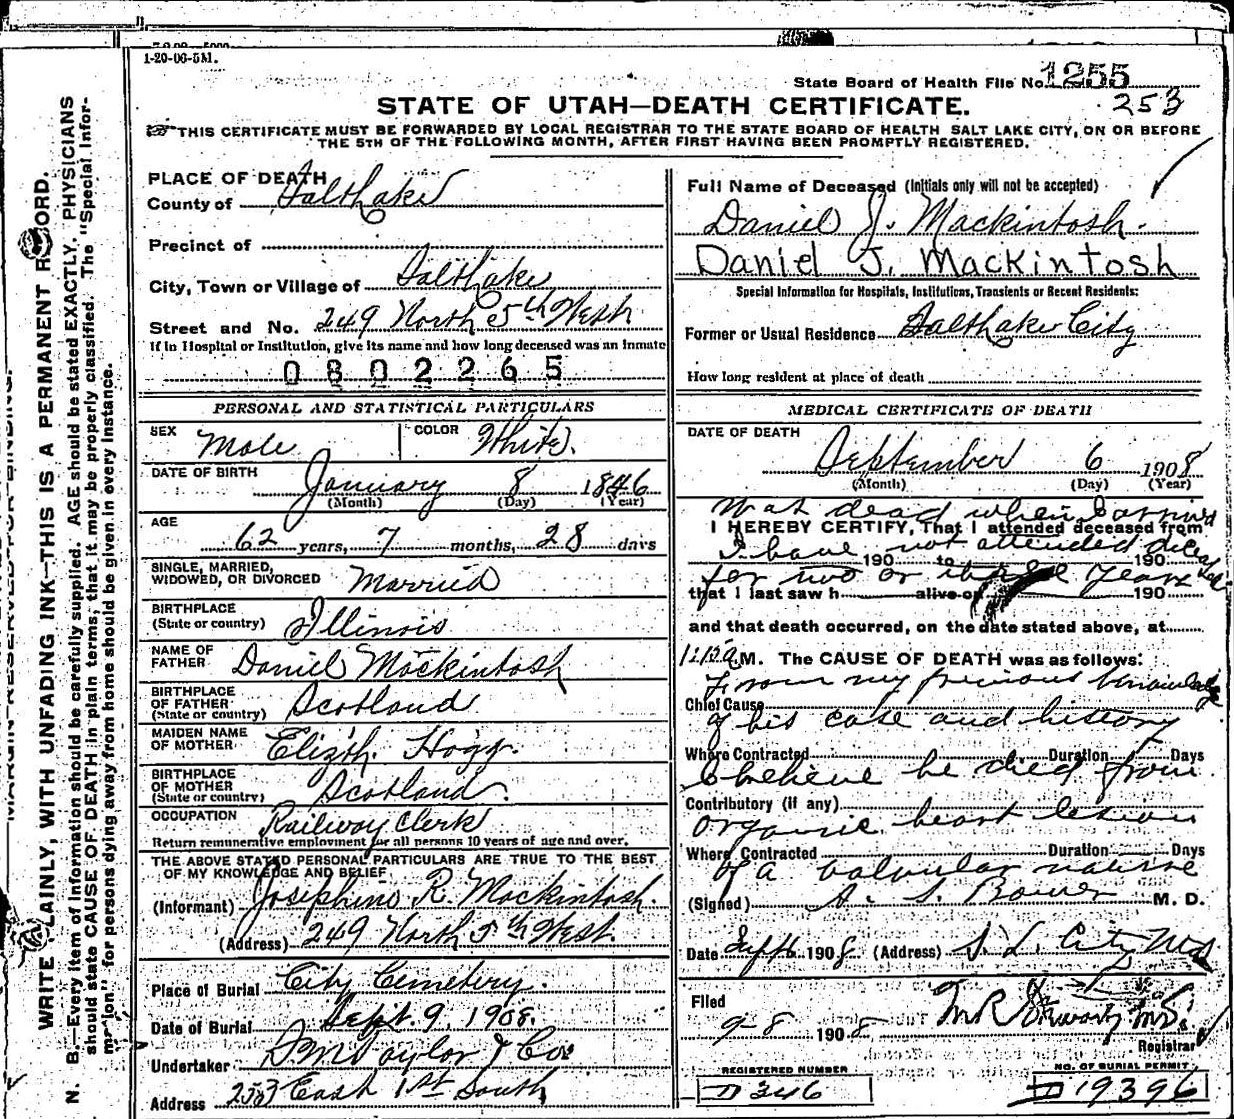 1-20-06-5M.
State Board of Health File No. 1255
253
STATE OF UTAH—DEATH CERTIFICATE.
THIS CERTIFICATE MUST BE FORWARDED BY LOCAL REGISTRAR TO THE STATE BOARD OF HEALTH SALT LAKE CITY, ON OR BEFORE
THE 5TH OF THE FOLLOWING MONTH, AFTER FIRST HAVING BEEN PROMPTLY REGISTERED.
WRITE PLAINLY, WITH UNFADING INK—THIS IS A PERMANENT RECORD.
N. B.—Every item of information should be carefully supplied. AGE should be stated EXACTLY. PHYSICIANS
should state CAUSE OF DEATH in plain terms, that it may be properly classified. The "Special Infor-
mation" for persons dying away from home should be given in every instance.
PLACE OF DEATH
County of Salt Lake
Precinct of
City, Town or Village of Salt Lake
Street and No. 249 North 5th West
If in Hospital or Institution, give its name and how long deceased was an inmate
0802265
PERSONAL AND STATISTICAL PARTICULARS
SEX Male COLOR White
DATE OF BIRTH January 8 1846
(Month) (Day) (Year)
AGE
62 years, 7 months, 28 days
SINGLE, MARRIED,
WIDOWED, OR DIVORCED Married
BIRTHPLACE
(State or country) Illinois
NAME OF
FATHER Daniel Mackintosh
BIRTHPLACE
OF FATHER
(State or country) Scotland
MAIDEN NAME
OF MOTHER Elizth. Hogg
BIRTHPLACE
OF MOTHER
(State or country) Scotland
OCCUPATION Railway Clerk
Return remunerative employment for all persons 10 years of age and over.
THE ABOVE STATED PERSONAL PARTICULARS ARE TRUE TO THE BEST
OF MY KNOWLEDGE AND BELIEF
(Informant) Josephine R. Mackintosh.
(Address) 249 North 5th West
Place of Burial City Cemetery.
Date of Burial Sept. 9, 1908.
Undertaker S M Taylor & Co
Address 253 East 1st South
Full Name of Deceased (Initials only will not be accepted)
Daniel J. Mackintosh.
Daniel J. Mackintosh
Special Information for Hospitals, Institutions, Transients or Recent Residents:
Former or Usual Residence Salt Lake City
How long resident at place of death
MEDICAL CERTIFICATE OF DEATH
DATE OF DEATH
September 6 1908
(Month) (Day) (Year)
Was dead when I arrived
I HEREBY CERTIFY, That I attended deceased from
I have not attended deceased
190 to 190
for two or three years
that I last saw h alive on 190
and that death occurred, on the date stated above, at
A.M. The CAUSE OF DEATH was as follows:
From my previous knowledge
Chief Cause
of his case and history
Where Contracted Duration Days
I believe he died from
Contributory (if any)
organic heart lesion
Where Contracted Duration Days
of a valvular nature
(Signed) A. S. Bower M. D.
Date Sept 6 1908 (Address) S. L. City
Filed
9-8 1908
Registrar
REGISTERED NUMBER
D 346
NO. OF BURIAL PERMIT
D 19396